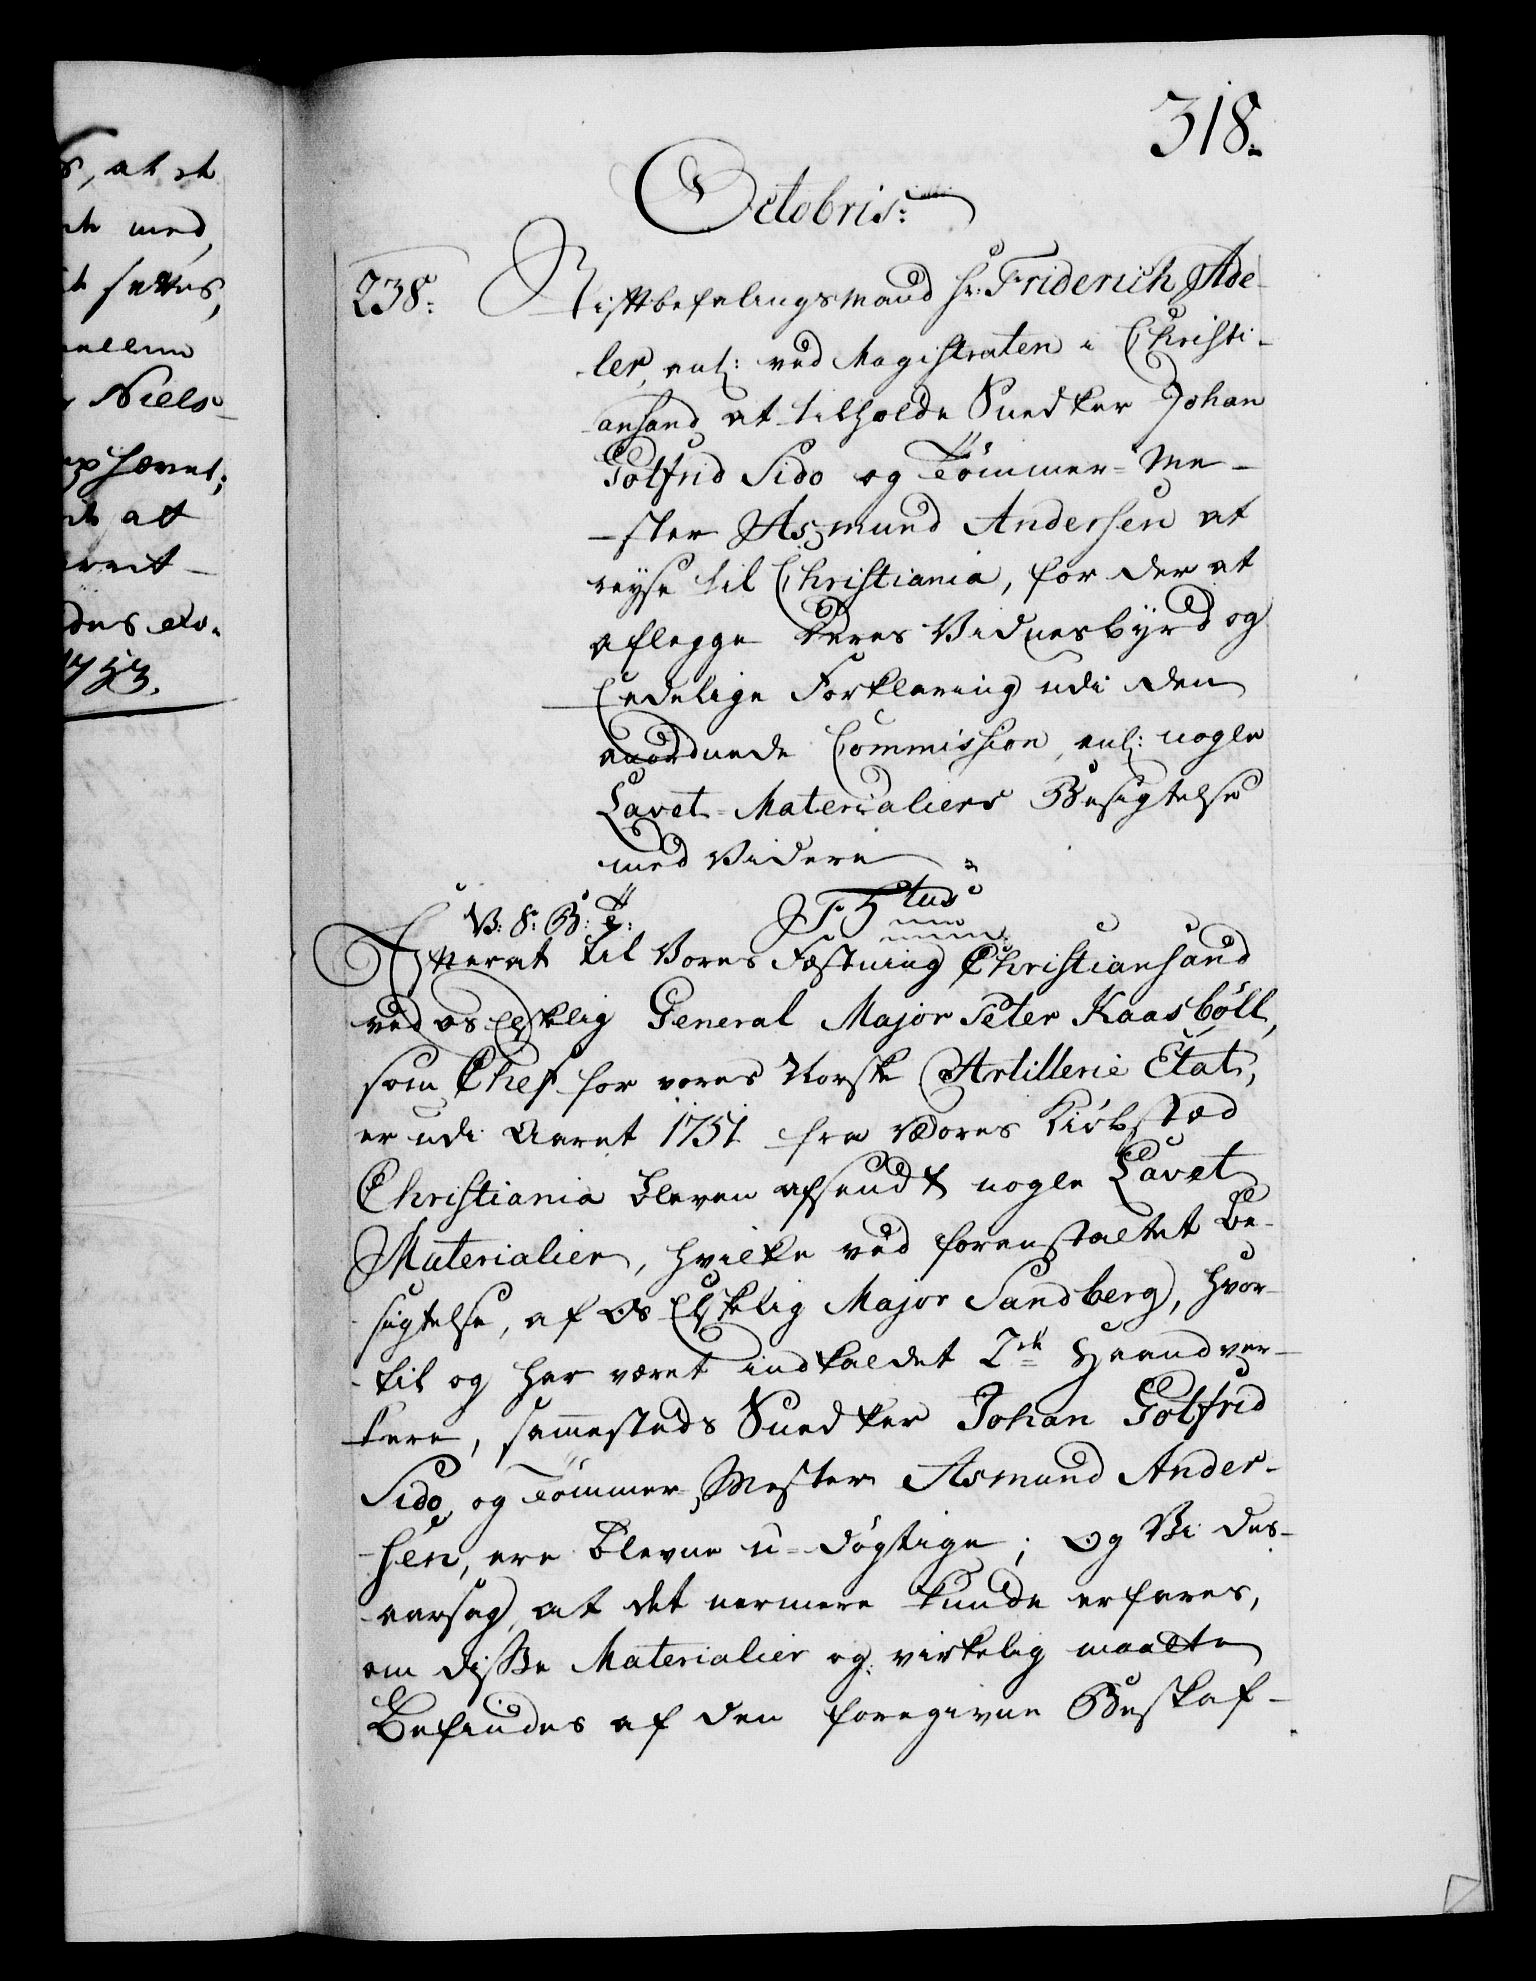 s, at et
med,
settes,
mellem
Niels-
ophævet;
at
1753.
318.
Octobris:
238.
Stiftbefalingsmand Hr: Friderich Ade-
ler, anl: ved Magistraten i Christi-
ansand at tilholde Snedker Johan
Gotfrid Sido og Tömmer-Me-
-ster Asmund Andersen at
reyse til Christiania, for der at
aflegge deres Vidnesbyrd og
Eedelige Forklaring udi den
anordnede Commission, anl: nogle
Lavet-Materialiers Besigtelse
med Videre
V: S: B: T: F5tus
Efterat til Vores Fæstning Christiansand
ved os Elskelig General Major Peter Kaasböll,
som Chef for vores Norske Artillerie Etat,
er udi Aaret 1751 fra Vores Kiöbstæd
Christiania bleven afsendt nogle Lavet
Materialier, hvilke ved foranstaltet Be-
sigtelse, af Os Elskelig Major Sandberg, hvor-
til og har været indkaldet 2de Haandver-
kere, sammesteds Snedker Johan Gotfrid
Sido og Tömmer Mester Asmund Ander-
-sen, ere blevne u-døgtige; Og Vi des-
aarsag, at det nermere kunde erfares,
om disse Materialier og virkelig maatte
Befindes af den foregivne Beskaf-